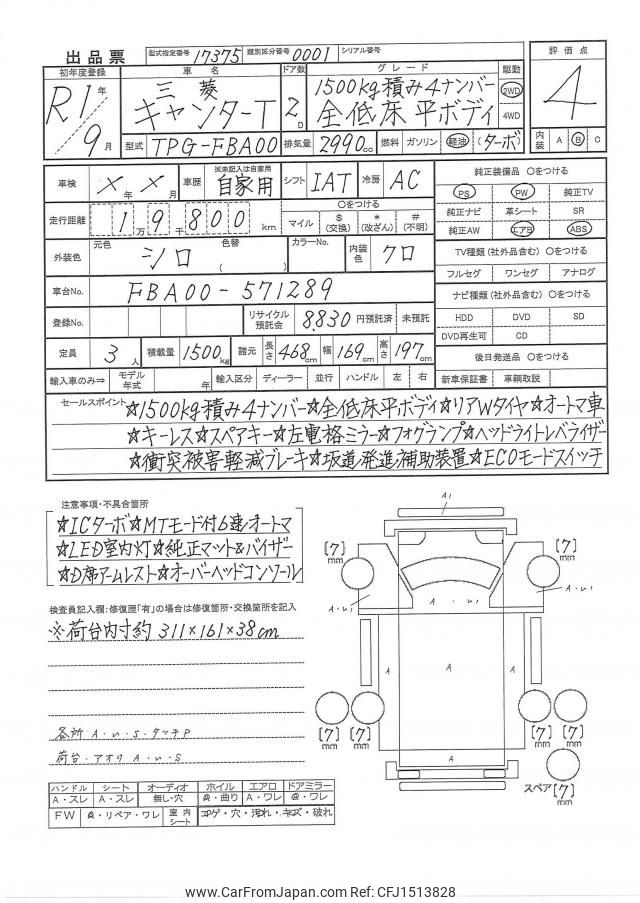 出品票 型式指定番号 17375 類別区分番号 0001 シリアル番号
初年度登録 車名 ドア数 グレード 駆動 評価点
R1年 9月 三菱 キャンターT 2D 1500kg積み4ナンバー 全低床 平ボディ 2WD 4WD 4
型式 TPG-FBA00 排気量 2990cc 燃料 ガソリン 軽油 (ターボ) 内装 A B C
車検 X年X月 車歴 ※未記入は自家用 自家用 シフト IAT 冷房 AC 純正装備品 ○をつける
PS PW 純正TV
走行距離 1万9千800km ○をつける マイル $(交換) *(改ざん) #(不明) 純正ナビ 革シート SR
純正AW エアB ABS
外装色 元色 シロ 色替 ( カラーNo. 内装色 クロ TV種類(社外品含む)○をつける
フルセグ ワンセグ アナログ
車台No. FBA00-571289 ナビ種類(社外品含む)○をつける
登録No. リサイクル預託金 8,830 円預託済 未預託 HDD DVD SD
DVD再生可 CD
定員 3人 積載量 1500kg 諸元 長さ468cm 幅169cm 高さ197cm 後日発送品 ○をつける
輸入車のみ⇒ モデル年式 年 輸入区分 ディーラー 並行 ハンドル 左 右 新車保証書 車輌取説
セールスポイント ☆1500kg積み4ナンバー☆全低床平ボディ☆リアWタイヤ☆オートマ車
☆キーレス☆スペアキー☆左電格ミラー☆フォグランプ☆ヘッドライトレベライザー
☆衝突被害軽減ブレーキ☆坂道発進補助装置☆ECOモードスイッチ
注意事項・不具合箇所
☆ICターボ☆MTモード付6速オートマ
☆LED室内灯☆純正マット&バイザー
☆D席アームレスト☆オーバーヘッドコンソール
検査員記入欄:修復歴「有」の場合は修復箇所・交換箇所を記入
※荷台内寸約 311×161×38cm
各所・A・u・S・タッチP
荷台・アオリ A・u・S
ハンドル シート オーディオ ホイル エアロ ドアミラー
A・スレ A・スレ 無し・穴 @・曲り A・ワレ @・ワレ
FW @・リペア・ワレ 室内シート コゲ・穴・汚れ・キズ・破れ
A1
[7]mm [7]mm
A・u1 A・u1 A・u1
A A A
A
[7]mm [7]mm [7]mm [7]mm
スペア[7]mm
www.CarFromJapan.com Ref: CFJ1513828